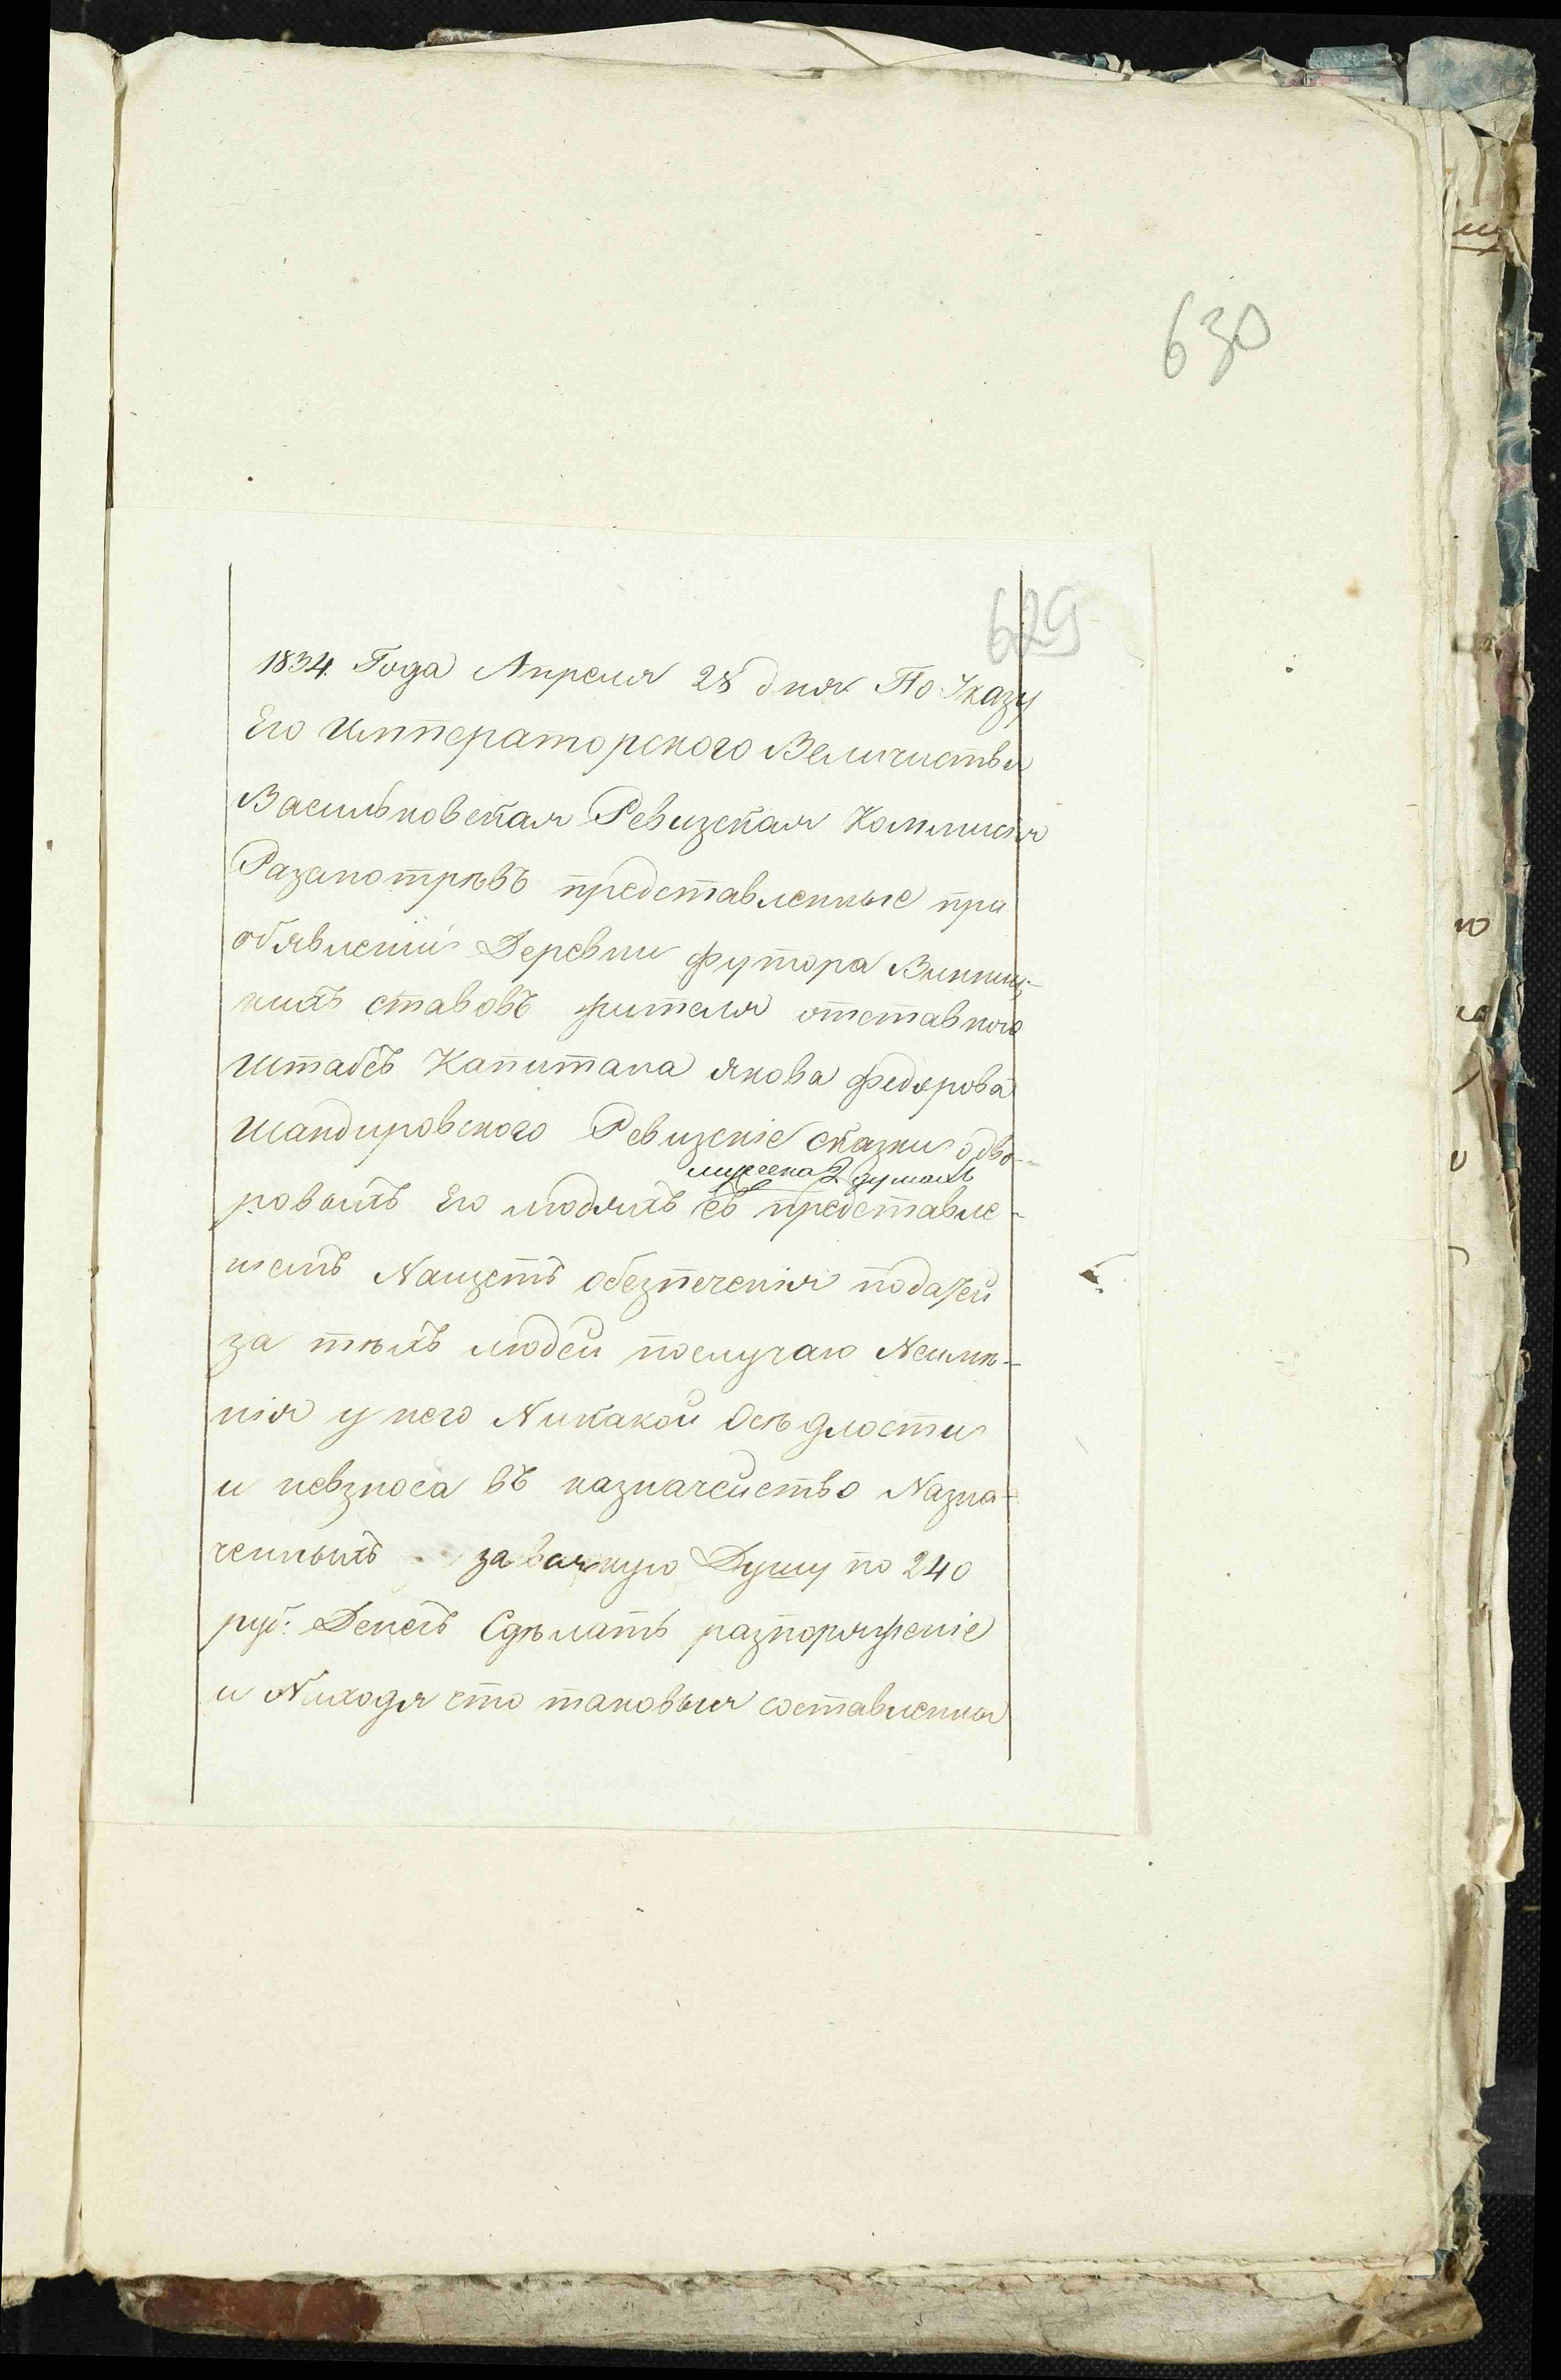 630
629
1834. Года Апреля 28 дня По Указу
Его Императорского Величиства
Васильковская Ревизская Коммисія
Разсмотрѣвъ представленные при
объявленіи Деревни футора Винниц-
кихъ ставовъ жителя отставного
Штабсъ Капитана Якова Федорова
Шандировского Ревизскіе сказки о дво-
мужеска 2 душахъ
ровыхъ Его людяхъ съ представле-
ніемъ Нащетъ обезпеченія податей
за тѣхъ людей послучаю Неимѣ-
нія у него Никакой Осѣдлости
и невзноса въ казначейство Назна-
ченныхъ за всякую Душу по 240
руб: Денегъ Сдѣлать разпоряженіе
и Находя сто таковыя составленны